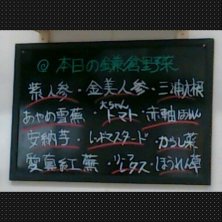 @本日の鎌倉野菜
紫人参・金美人参・三浦大根
あやめ雪蕪・大ちゃんトマト・赤軸ほうれん草
安納芋・レッドマスタード・からし菜
愛真紅蕪・リーフレタス・ほうれん草